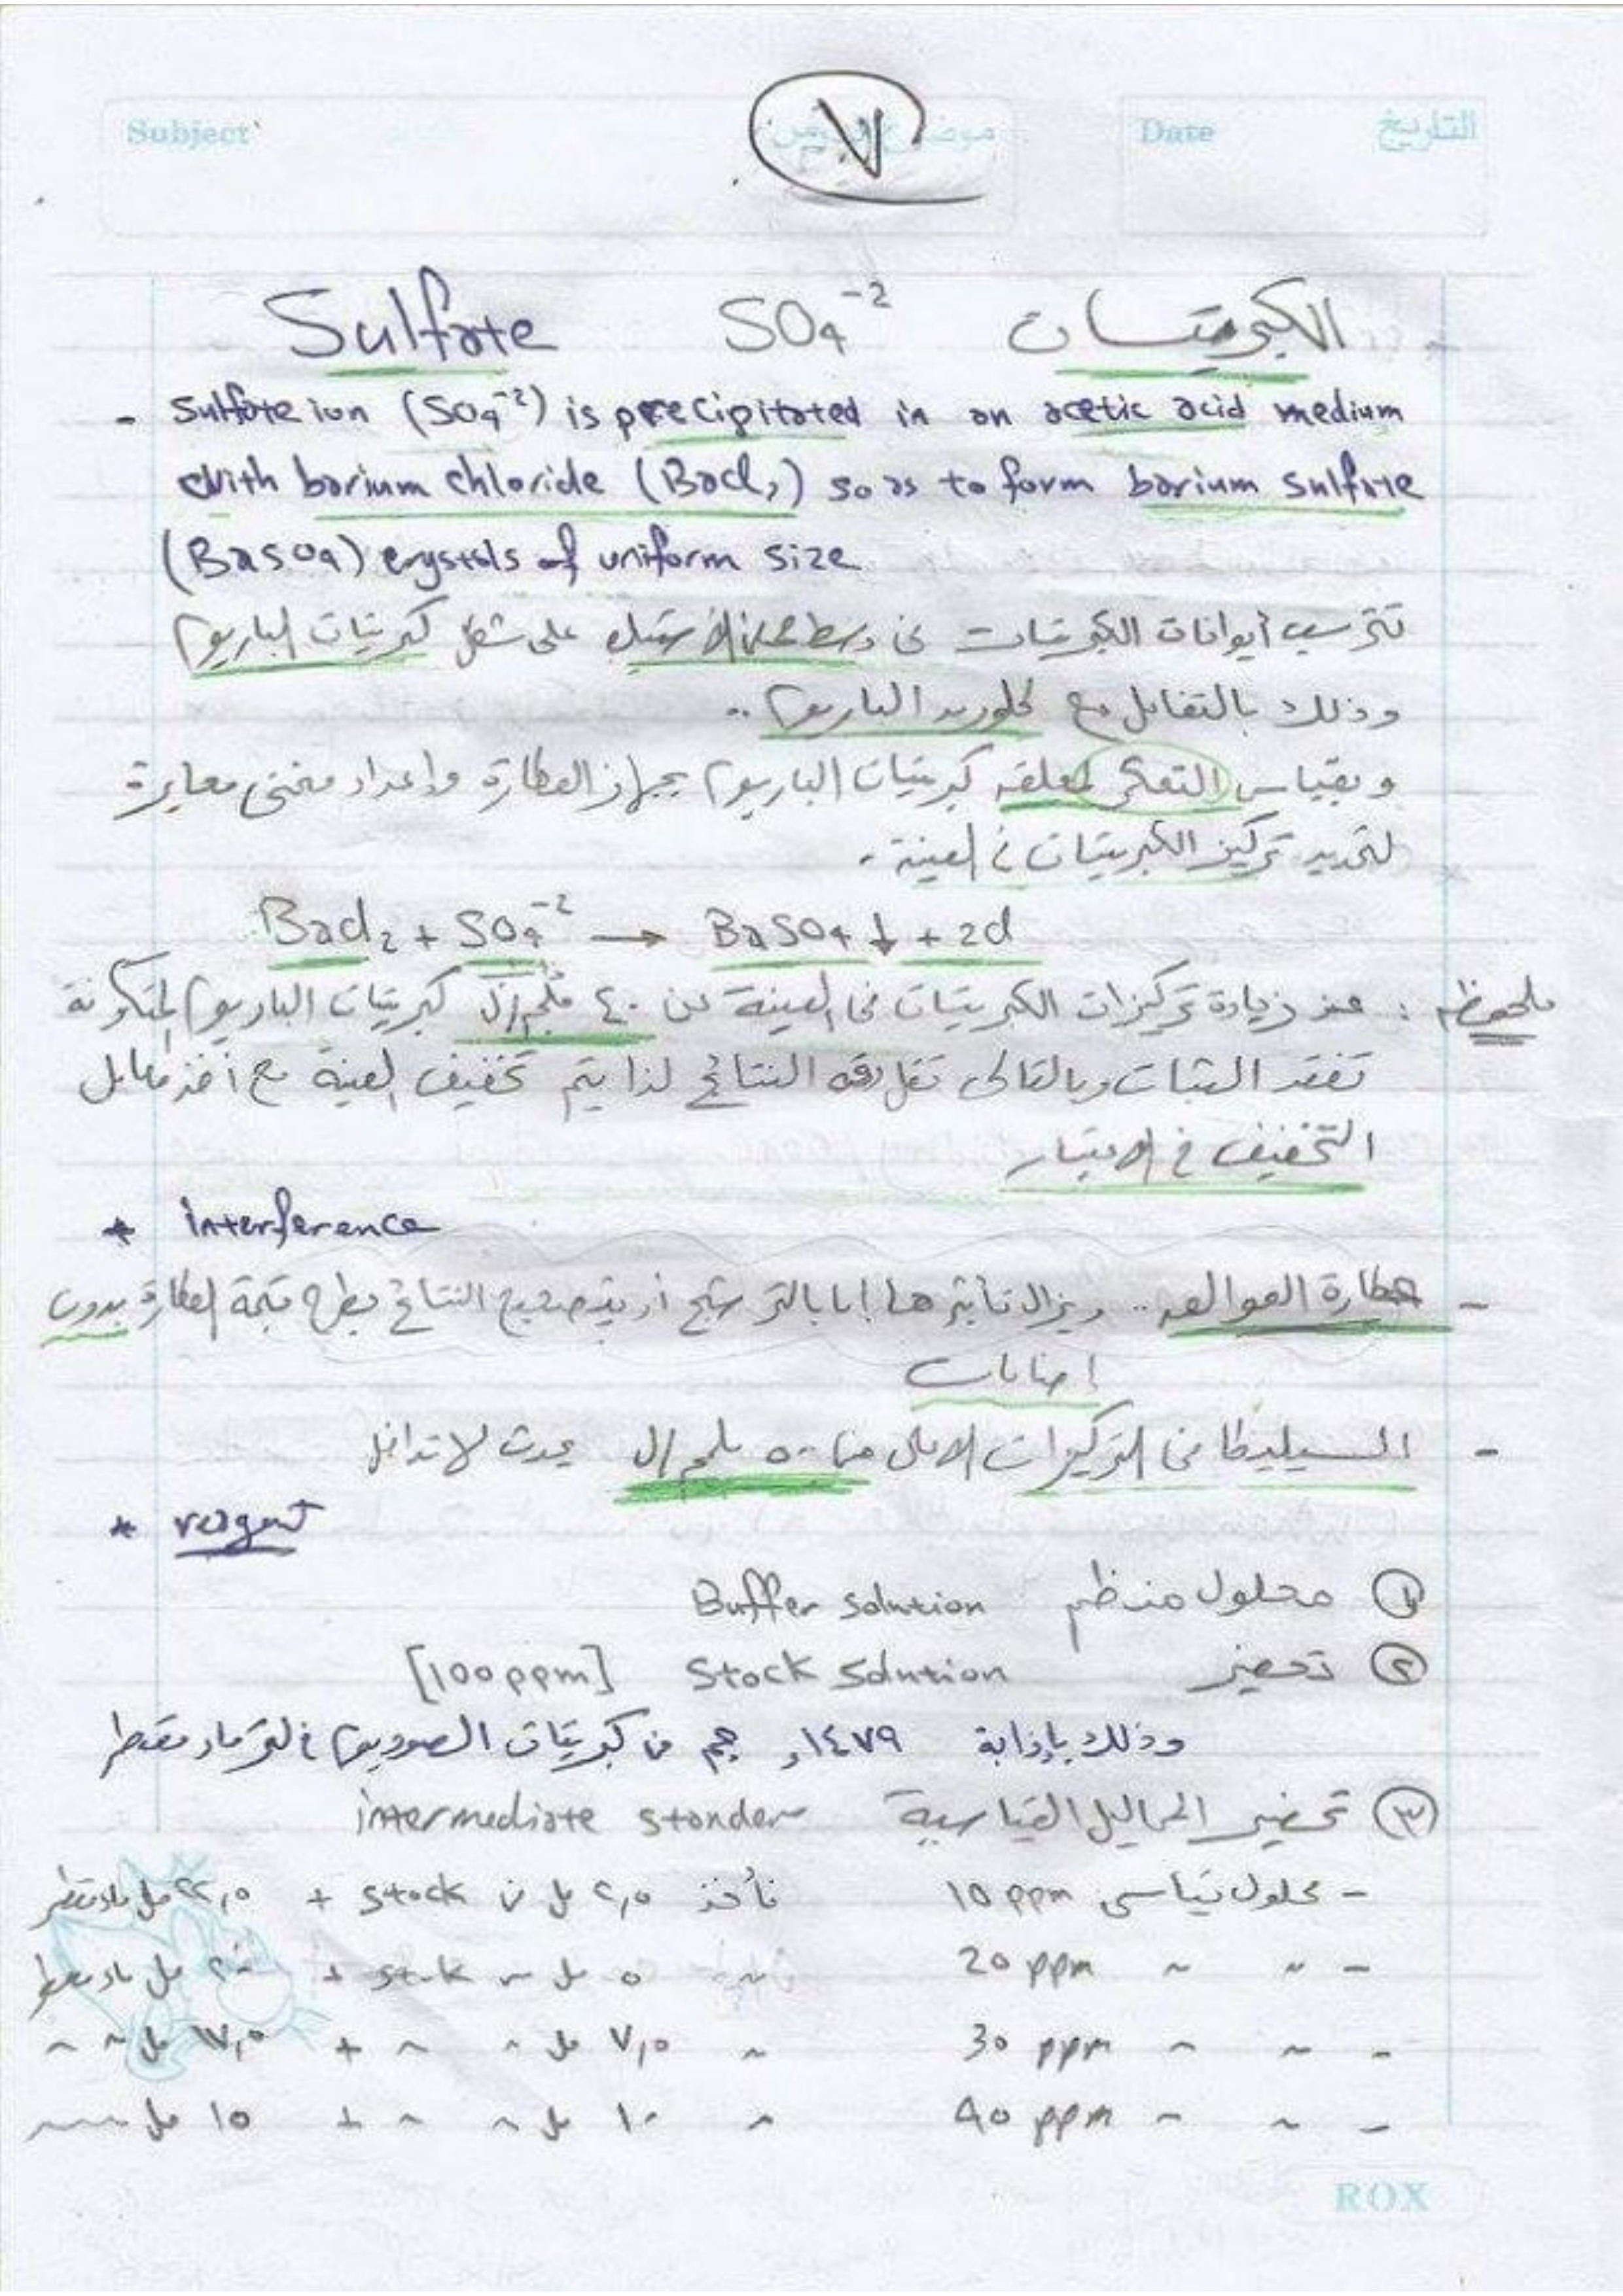 Subject
موضوع الدرس
Date
التاريخ
٧
Sulfate SO4-2 الكبريتات
- Sulfate ion (SO4-2) is precipitated in an acetic acid medium
with barium chloride (BaCl2) so as to form barium sulfate
(BaSO4) crystals of uniform size
تترسب أيونات الكبريتات في وسط حمض الأستيك على شكل كبريتات الباريوم
وذلك بالتفاعل مع كلوريد الباريوم ..
وبقياس التعكر لمعلق كبريتات الباريوم بجهاز العكارة وإعداد منحنى معايرة
لتحديد تركيز الكبريتات في العينة .
BaCl2 + SO4-2 → BaSO4 ↓ + 2Cl
ملحوظة : عند زيادة تركيزات الكبريتات في العينة عن ٤٠ ملجم/ل كبريتات الباريوم المتكونة
تفقد الثبات وبالتالى تقل دقة النتائج لذا يتم تخفيف العينة مع أخذ معامل
التخفيف في الاعتبار
* interference
- عكارة العوالق .. ويزال تأثيرها إما بالترشيح أو بتصحيح النتائج بطرح قيمة العكارة بدون
إضافات
- السيليكا في التركيزات الأعلى من ٥٠٠ ملجم/ل يحدث لا تداخل
* reagent
① محلول منظم Buffer Solution
② تحضير Stock Solution [100 ppm]
وذلك بإذابة ١٤٧٩, جم من كبريتات الصوديوم في لتر ماء مقطر
③ تحضير المحاليل القياسية intermediate stander
- محلول قياسى 10 ppm نأخذ ٢,٥ مل من stock + ٢٢,٥ مل ماء مقطر
- " " 20 ppm " ٥ مل من stock + ٢٠ مل ماء مقطر
- " " 30 ppm " ٧,٥ مل " " + ١٧,٥ مل " "
- " " 40 ppm " ١٠ مل " " + ١٥ مل " "
ROX